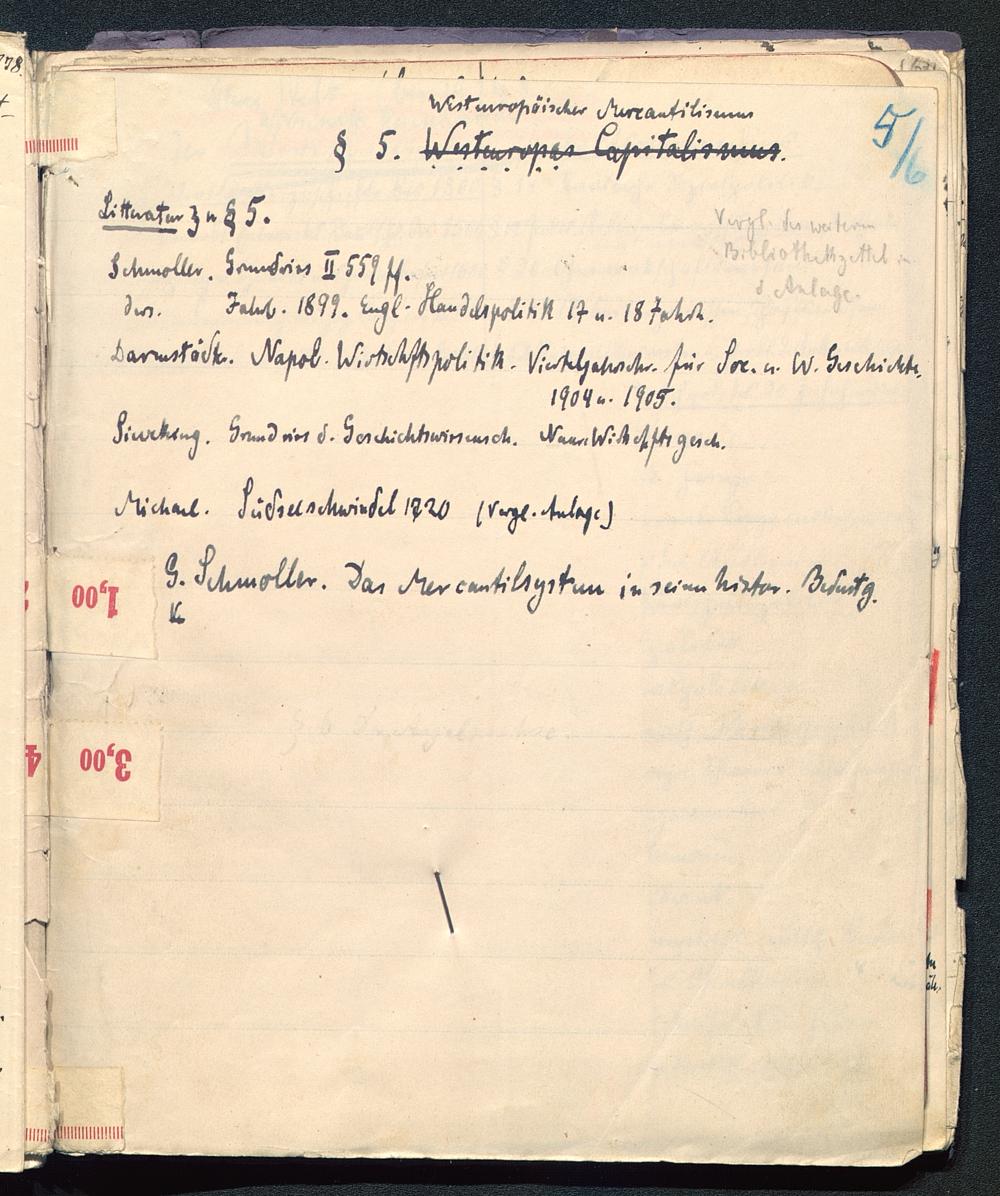 5/6
Westeuropäischer Mercantilismus
§ 5. Westeuropas Capitalismus.
Litteratur zu § 5.
Vergl. des weiteren
Bibliothekzettel in
d. Anlage.
Schmoller. Grundriss II 559 ff.
ders. Jahrb. 1899. Engl. Handelspolitik 17 u. 18 Jahrh.
Darmstädt. Napol. Wirtschaftspolitik. Vierteljahrschr. für Soc. u. W. Geschichte.
1904 u. 1905.
Sieveking. Grundriss d. Geschichtswissensch. Neuere Wirtschftsgesch.
Michael. Südseeschwindel 1720 (Vergl. Anlage)
G. Schmoller. Das Mercantilsystem in seiner histor. Bedeutg.
1,00
3,00